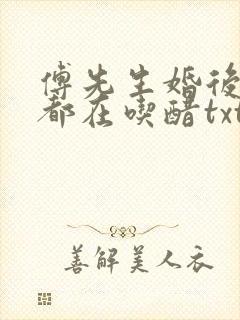 傅先生婚後
都在喫醋txt
善解美人衣